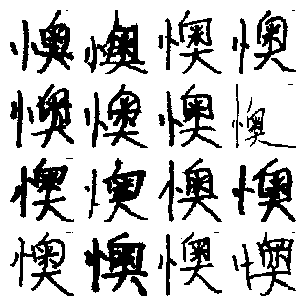 懊懊懊懊
懊懊懊懊
懊懊懊懊
懊懊懊懊